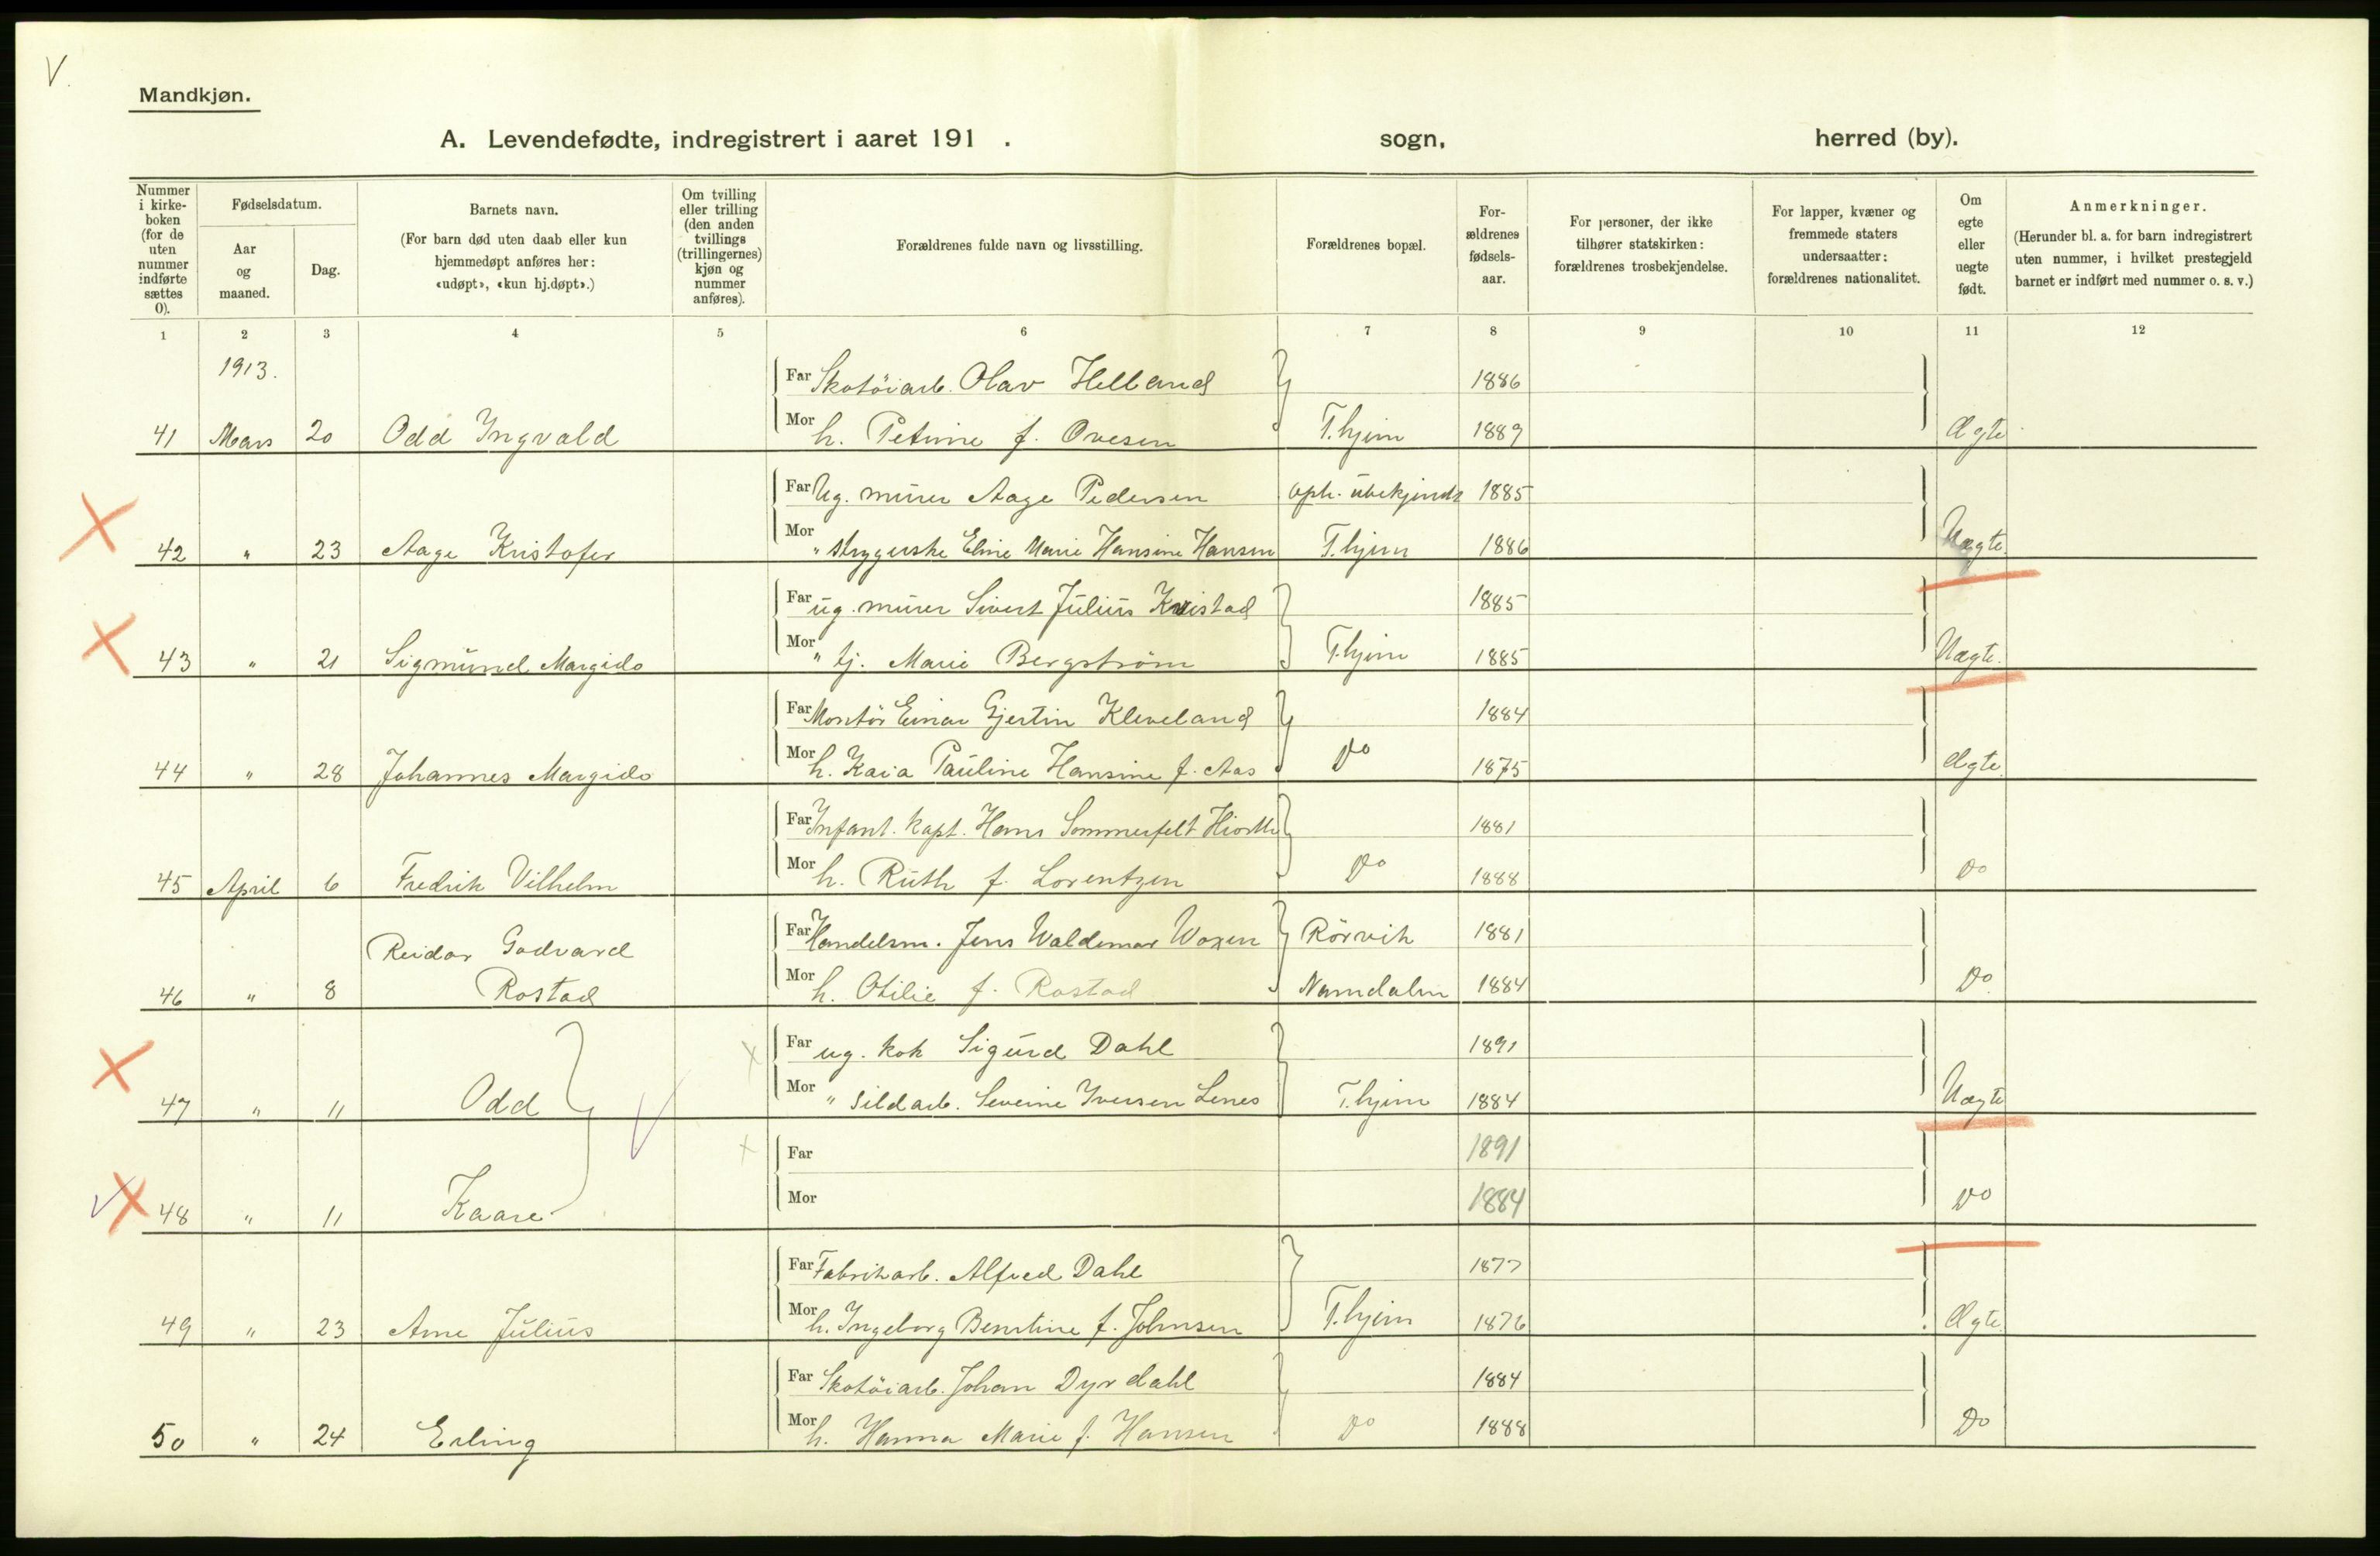 V.
Mandkjøn.
A. Levendefødte, indregistrert i aaret 191 . sogn, herred (by).
Nummer i kirke-boken (for de uten nummer indførte sættes 0).
Fødselsdatum.
Aar og maaned.
Dag.
Barnets navn.
(For barn død uten daab eller kun hjemmedøpt anføres her: «udøpt», «kun hj.døpt».)
Om tvilling eller trilling (den anden tvillings (trillingernes) kjøn og nummer anføres).
Forældrenes fulde navn og livsstilling.
Forældrenes bopæl.
For-ældrenes fødsels-aar.
For personer, der ikke tilhører statskirken: forældrenes trosbekjendelse.
For lapper, kvæner og fremmede staters undersaatter: forældrenes nationalitet.
Om egte eller uegte født.
Anmerkninger.
(Herunder bl. a. for barn indregistrert uten nummer, i hvilket prestegjeld barnet er indført med nummer o. s. v.)
1 2 3 4 5 6 7 8 9 10 11 12
1913.
Far Skotöiarb. Olav Helland 1886
41 Mars 20 Odd Ingvald Mor h. Petrine f. Ovesen T.hjem 1889 Ægte
Far Ug. murer Aage Pedersen oph. ubekjendt 1885
42 " 23 Aage Kristofer Mor " strygerske Eline Marie Hansine Hansen T.hjem 1886 Uægte
Far ug. murer Sivert Julius Kvistad 1885
43 " 21 Sigmund Margido Mor " tj. Marie Bergström T.hjem 1885 Uægte.
Far Montör Einar Gjertin Kleveland 1884
44 " 28 Johannes Margido Mor h. Kaia Pauline Hansine f. Aas Do 1875 Ægte
Far Infant. kapt. Hans Sommerfelt Hiorth 1881
45 April 6 Fredrik Vilhelm Mor h. Ruth f. Lorentzen Do 1888 Do
Reidar Godvard Far Handelsm. Jens Waldemar Woxen Rörvik 1881
46 " 8 Rostad Mor h. Otilie f. Rostad Namdalen 1884 Do
Far ug. kok Sigurd Dahl 1891
47 " 11 Odd Mor " sildarb. Severine Iversen Lenes T.hjem 1884 Uægte
Far 1891
48 " 11 Kaare Mor 1884 Do
Far Fabrikarb. Alfred Dahl 1877
49 " 23 Arne Julius Mor h. Ingeborg Berntine f. Johnsen T.hjem 1876 Ægte
Far Skotöiarb. Johan Dyrdahl 1884
50 " 24 Erling Mor h. Hanna Marie f. Hansen Do 1888 Do